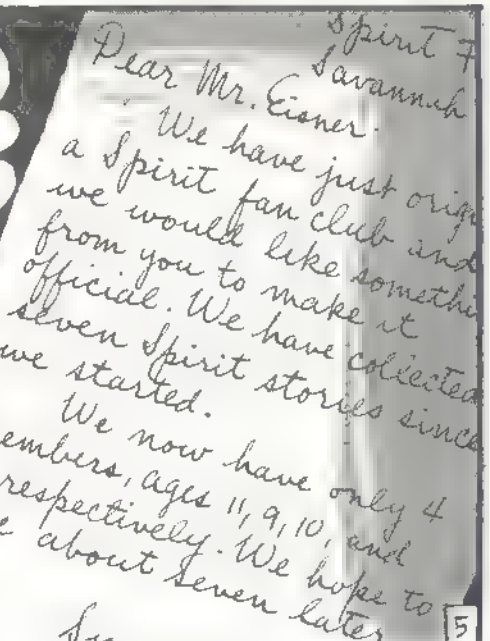 Spirit F
Savannah
Dear Mr. Eisner.
We have just orig
a Spirit fan club and
we would like somethi
from you to make it
official. We have collected
seven Spirit stories since
we started.
We now have only 4
embers, ages 11, 9, 10, and
respectively. We hope to
e about seven later
5